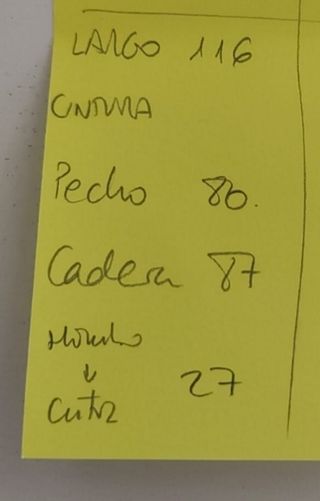 LARGO 116
CINTURA
Pecho 80.
Cadera 87
Hombro
↓
Cintz 27